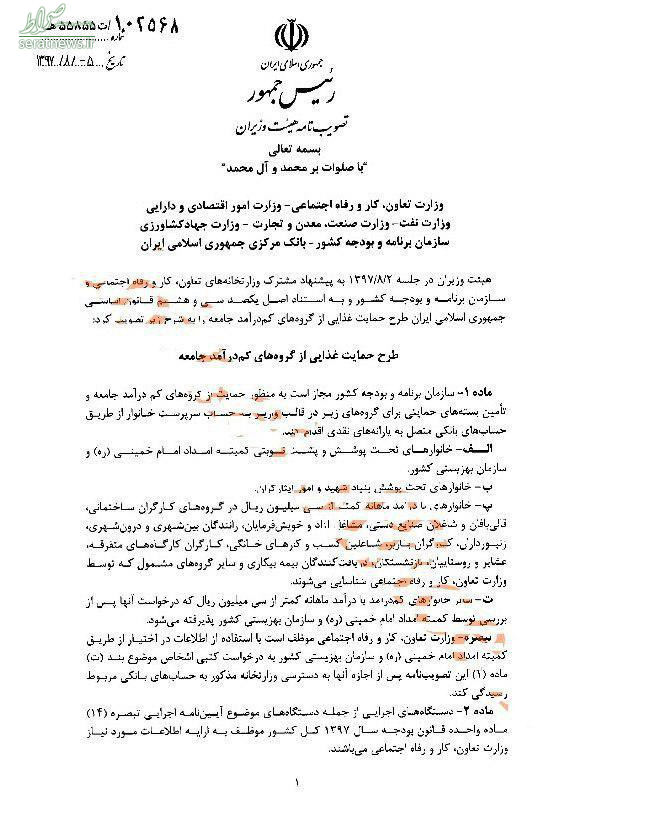 صراط
seratnews.ir
شماره ۱۰۲۵۶۸/ت۵۵۸۵۵هـ
تاریخ ۱۳۹۷/۸/۰۵
جمهوری اسلامی ایران
رئیس جمهور
تصویب نامه هیئت وزیران
بسمه تعالی
"با صلوات بر محمد و آل محمد"
وزارت تعاون، کار و رفاه اجتماعی- وزارت امور اقتصادی و دارایی
وزارت نفت- وزارت صنعت، معدن و تجارت - وزارت جهادکشاورزی
سازمان برنامه و بودجه کشور- بانک مرکزی جمهوری اسلامی ایران
هیئت وزیران در جلسه ۱۳۹۷/۸/۲ به پیشنهاد مشترک وزارتخانه‌های تعاون، کار و رفاه اجتماعی و
سازمان برنامه و بودجه کشور و به استناد اصل یکصد و سی و هشتم قانون اساسی
جمهوری اسلامی ایران طرح حمایت غذایی از گروه‌های کم‌درآمد جامعه را به شرح زیر تصویب کرد:
طرح حمایت غذایی از گروه‌های کم‌درآمد جامعه
ماده ۱- سازمان برنامه و بودجه کشور مجاز است به منظور حمایت از گروه‌های کم درآمد جامعه و
تأمین بسته‌های حمایتی برای گروه‌های زیر در قالب واریز به حساب سرپرست خانوار از طریق
حساب‌های بانکی متصل به یارانه‌های نقدی اقدام کند.
الف- خانوارهای تحت پوشش و پشت نوبتی کمیته امداد امام خمینی (ره) و
سازمان بهزیستی کشور.
ب- خانوارهای تحت پوشش بنیاد شهید و امور ایثارگران.
پ- خانوارهای با درآمد ماهانه کمتر از سی میلیون ریال در گروه‌های کارگران ساختمانی،
قالی‌بافان و شاغلان صنایع دستی، مشاغل آزاد و خویش‌فرمایان، رانندگان بین‌شهری و درون‌شهری،
زنبورداران، کارگران باربر، شاغلین کسب و کارهای خانگی، کارگران کارگاه‌های متفرقه،
عشایر و روستاییان، بازنشستگان، دریافت‌کنندگان بیمه بیکاری و سایر گروه‌های مشمول که توسط
وزارت تعاون، کار و رفاه اجتماعی شناسایی می‌شوند.
ت- سایر خانوارهای کم‌درآمد با درآمد ماهانه کمتر از سی میلیون ریال که درخواست آنها پس از
بررسی توسط کمیته امداد امام خمینی (ره) و سازمان بهزیستی کشور پذیرفته می‌شود.
تبصره- وزارت تعاون، کار و رفاه اجتماعی موظف است با استفاده از اطلاعات در اختیار از طریق
کمیته امداد امام خمینی (ره) و سازمان بهزیستی کشور به درخواست کتبی اشخاص موضوع بند (ت)
ماده (۱) این تصویب‌نامه پس از اجازه آنها به دسترسی وزارتخانه مذکور به حساب‌های بانکی مربوط
رسیدگی کند.
ماده ۲- دستگاه‌های اجرایی از جمله دستگاه‌های موضوع آیین‌نامه اجرایی تبصره (۱۴)
ماده واحده قانون بودجه سال ۱۳۹۷ کل کشور موظف به ارایه اطلاعات مورد نیاز
وزارت تعاون، کار و رفاه اجتماعی می‌باشند.
۱